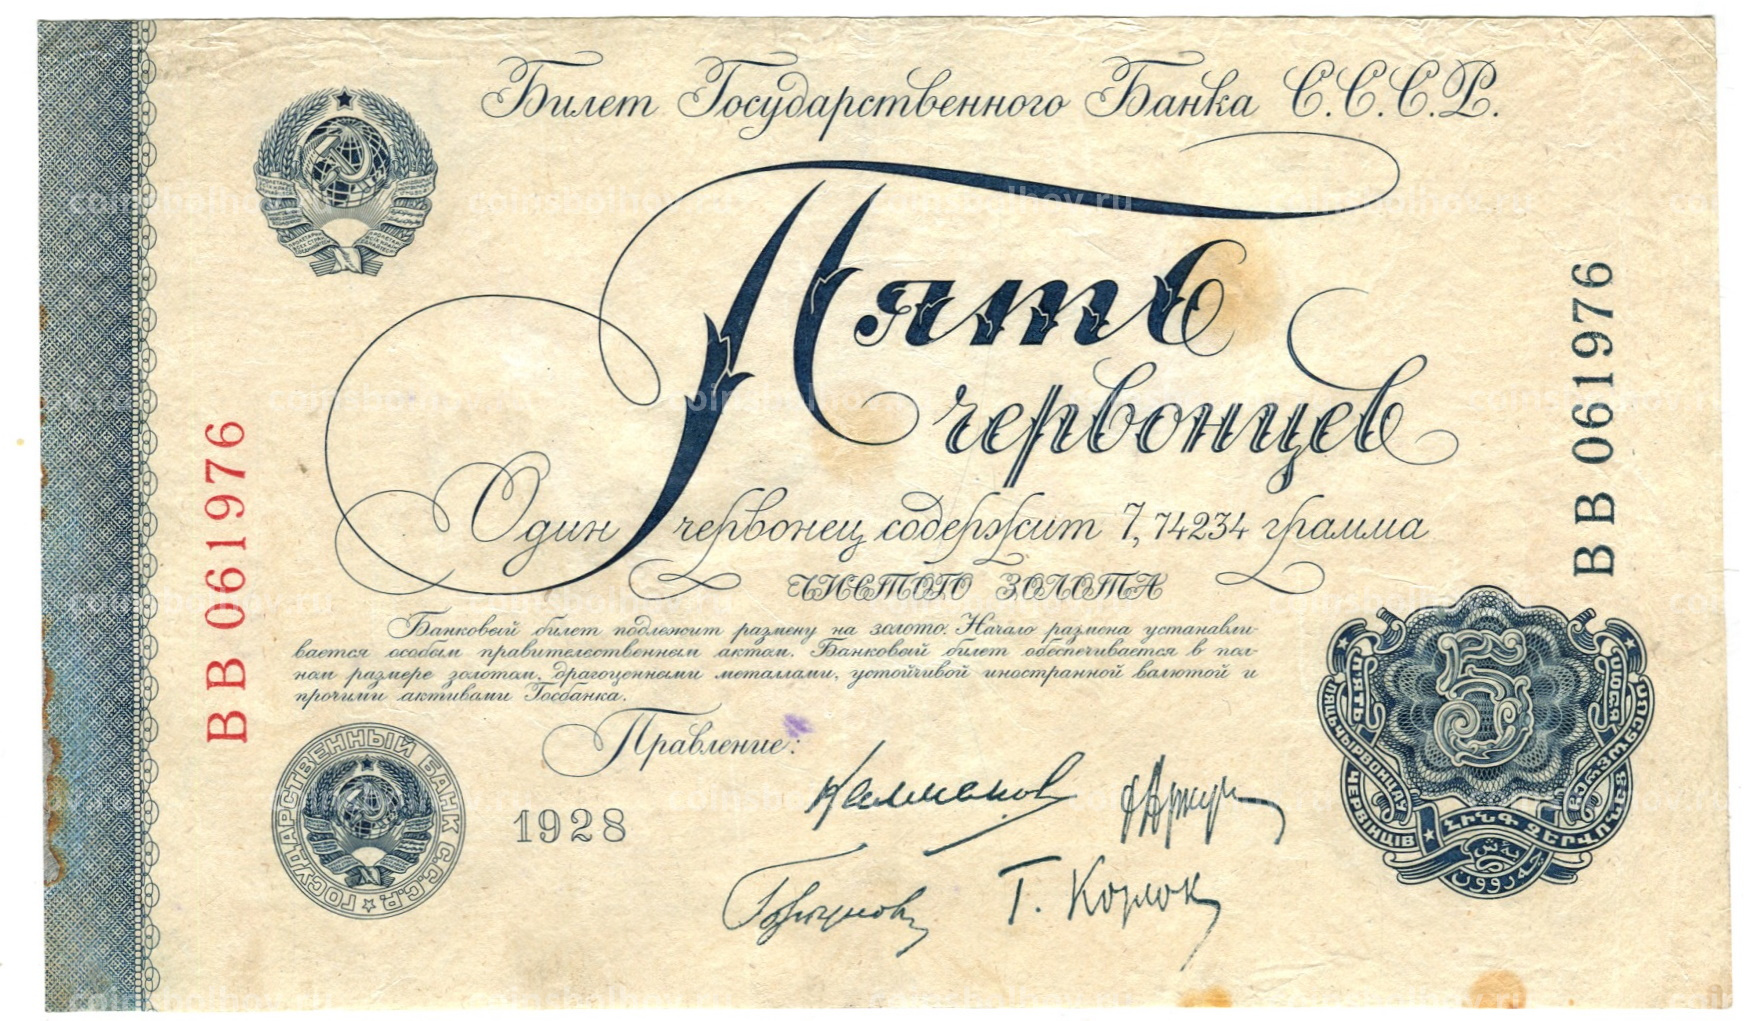 Билет Государственного Банка С.С.С.Р.
Пять
червонцев
Один червонец содержит 7,74234 грамма
ЧИСТОГО ЗОЛОТА
Банковый билет подлежит размену на золото. Начало размена устанавли-
вается особым правительственным актом. Банковый билет обеспечивается в пол-
ном размере золотом, драгоценными металлами, устойчивой иностранной валютой и
прочими активами Госбанка.
Правление:
1928
ГОСУДАРСТВЕННЫЙ БАНК С.С.С.Р.
ВВ 061976
ВВ 061976
5
П'ЯТЬ ЧЕРВІНЦІВ
ПЯЦЬ ЧЫРВОНЦАЎ
ՀԻՆԳ ՉԵՐՎՈՆԵՑ
coinsbolhov.ru